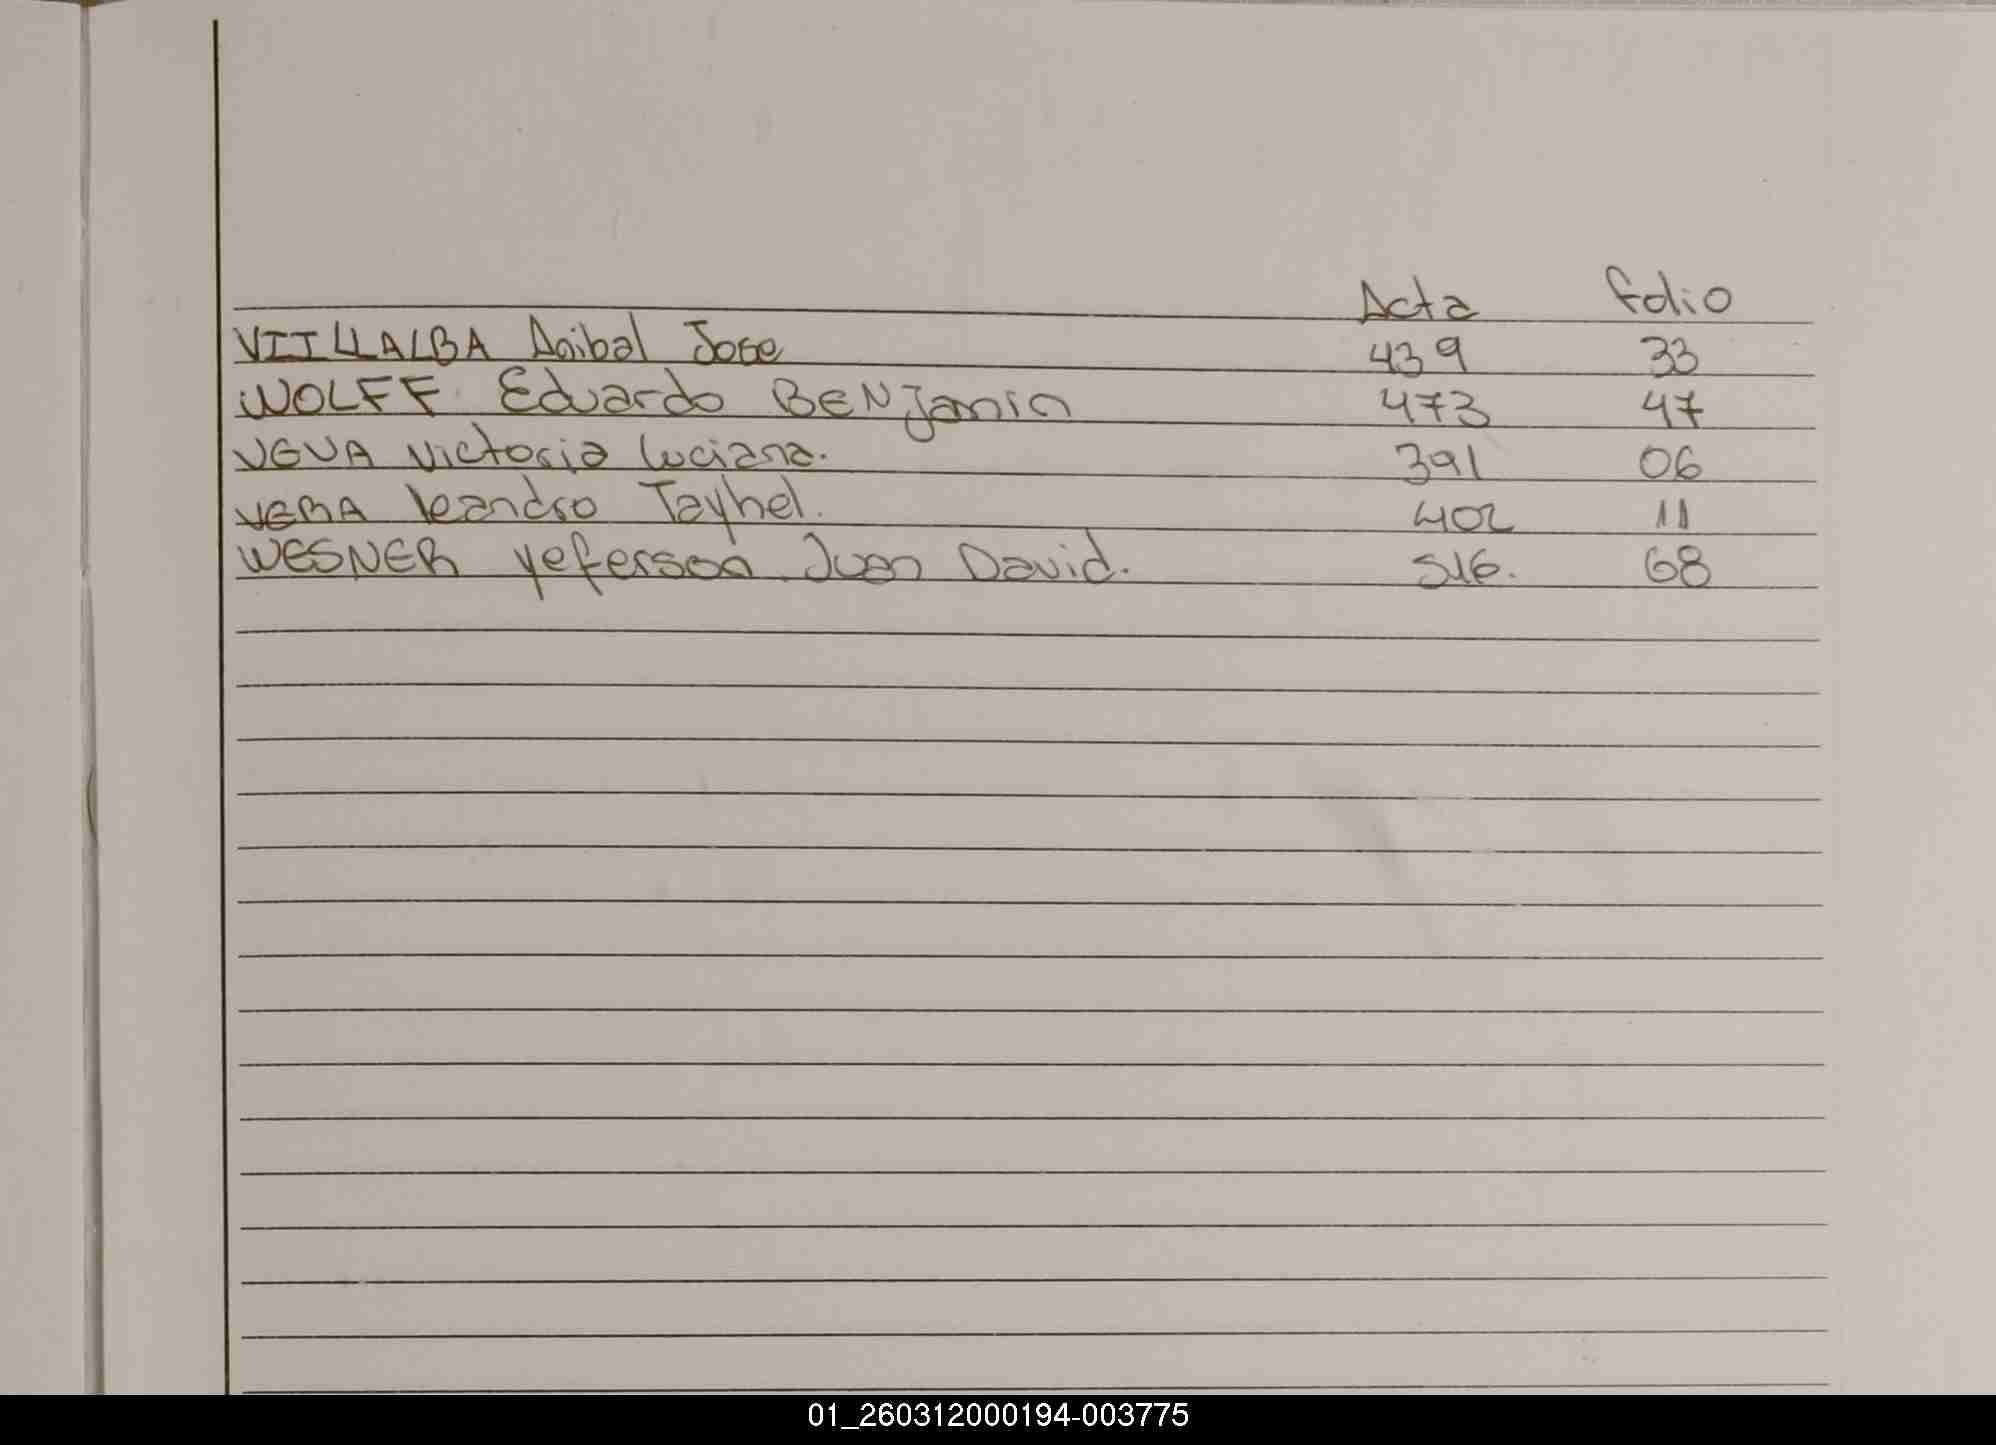 Acta folio
VIILLALBA Anibal Jose 439 33
WOLFF Eduardo BENJamin 473 47
Victoria Luciana. 391 06
VERA leandro Tayhel. 402 11
WESNER yeferson Juan David. 516. 68
01_260312000194-003775